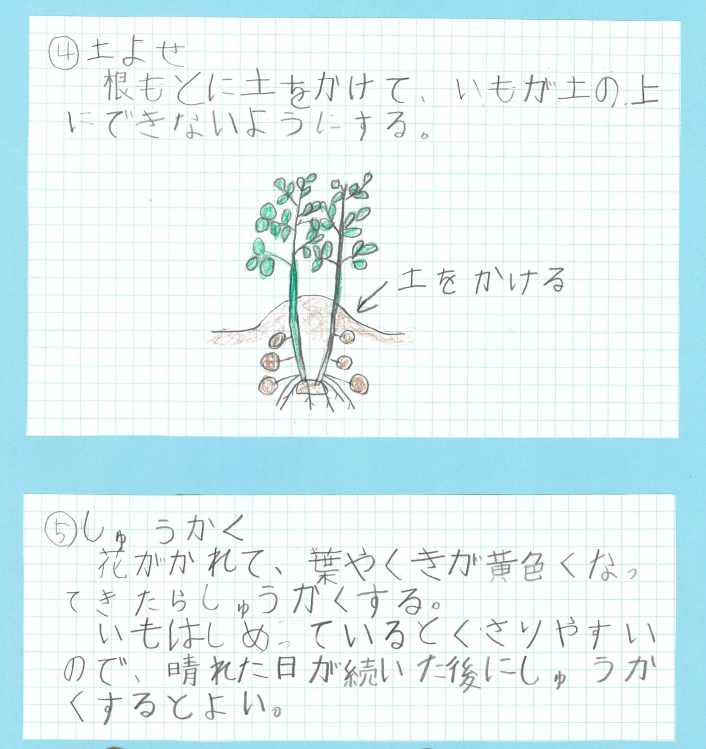 ④土よせ
根もとに土をかけて、いもが土の上
にできないようにする。
土をかける
⑤しゅうかく
花がかれて、葉やくきが黄色くなっ
てきたらしゅうかくする。
いもはしめっているとくさりやすい
ので、晴れた日が続いた後にしゅうか
くするとよい。